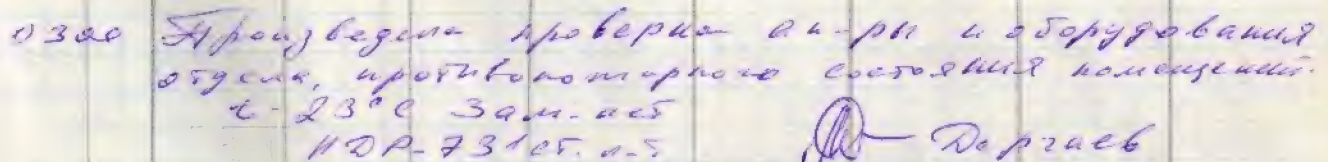 0300 Произведена проверка ап-ры и оборудования
отдела, противопожарного состояния помещений.
t-23°C Зам. нет
НДР-731 ст. л-т Дергаев